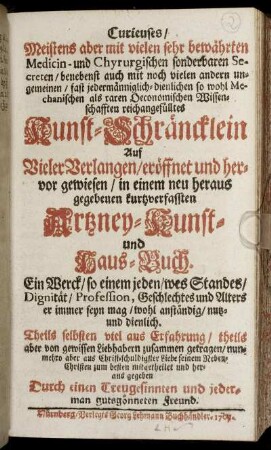 Curieuses/
Meistens aber mit vielen sehr bewährten
Medicin- und Chyrurgischen sonderbaren Se-
creten/ benebenst auch mit noch vielen andern un-
gemeinen/ fast jedermänniglich-dienlichen so wohl Me-
chanischen als raren Oeconomischen Wissen-
schafften reichangefülltes
Kunst-Schräncklein
Auf
Vieler Verlangen/ eröffnet und her-
vor gewiesen/ in einem neu heraus
gegebenen kurtzverfassten
Artzney-Kunst-
und
Haus-Buch.
Ein Werck/ so einem jeden/ wes Standes/
Dignität/ Profession, Geschlechtes und Alters
er immer seyn mag/ wohl anständig/ nutz-
und dienlich.
Theils selbsten viel aus Erfahrung/ theils
aber von gewissen Liebhabern zusammen getragen/ nun-
mehro aber aus Christschuldigster Liebe seinem Neben-
Christen zum besten mitgetheilet und her-
aus gegeben
Durch einen Treugesinnten und jeder-
man gutsgönneten Freund.
Nürnberg/ Verlegts Georg Lehmann Buchhändler.